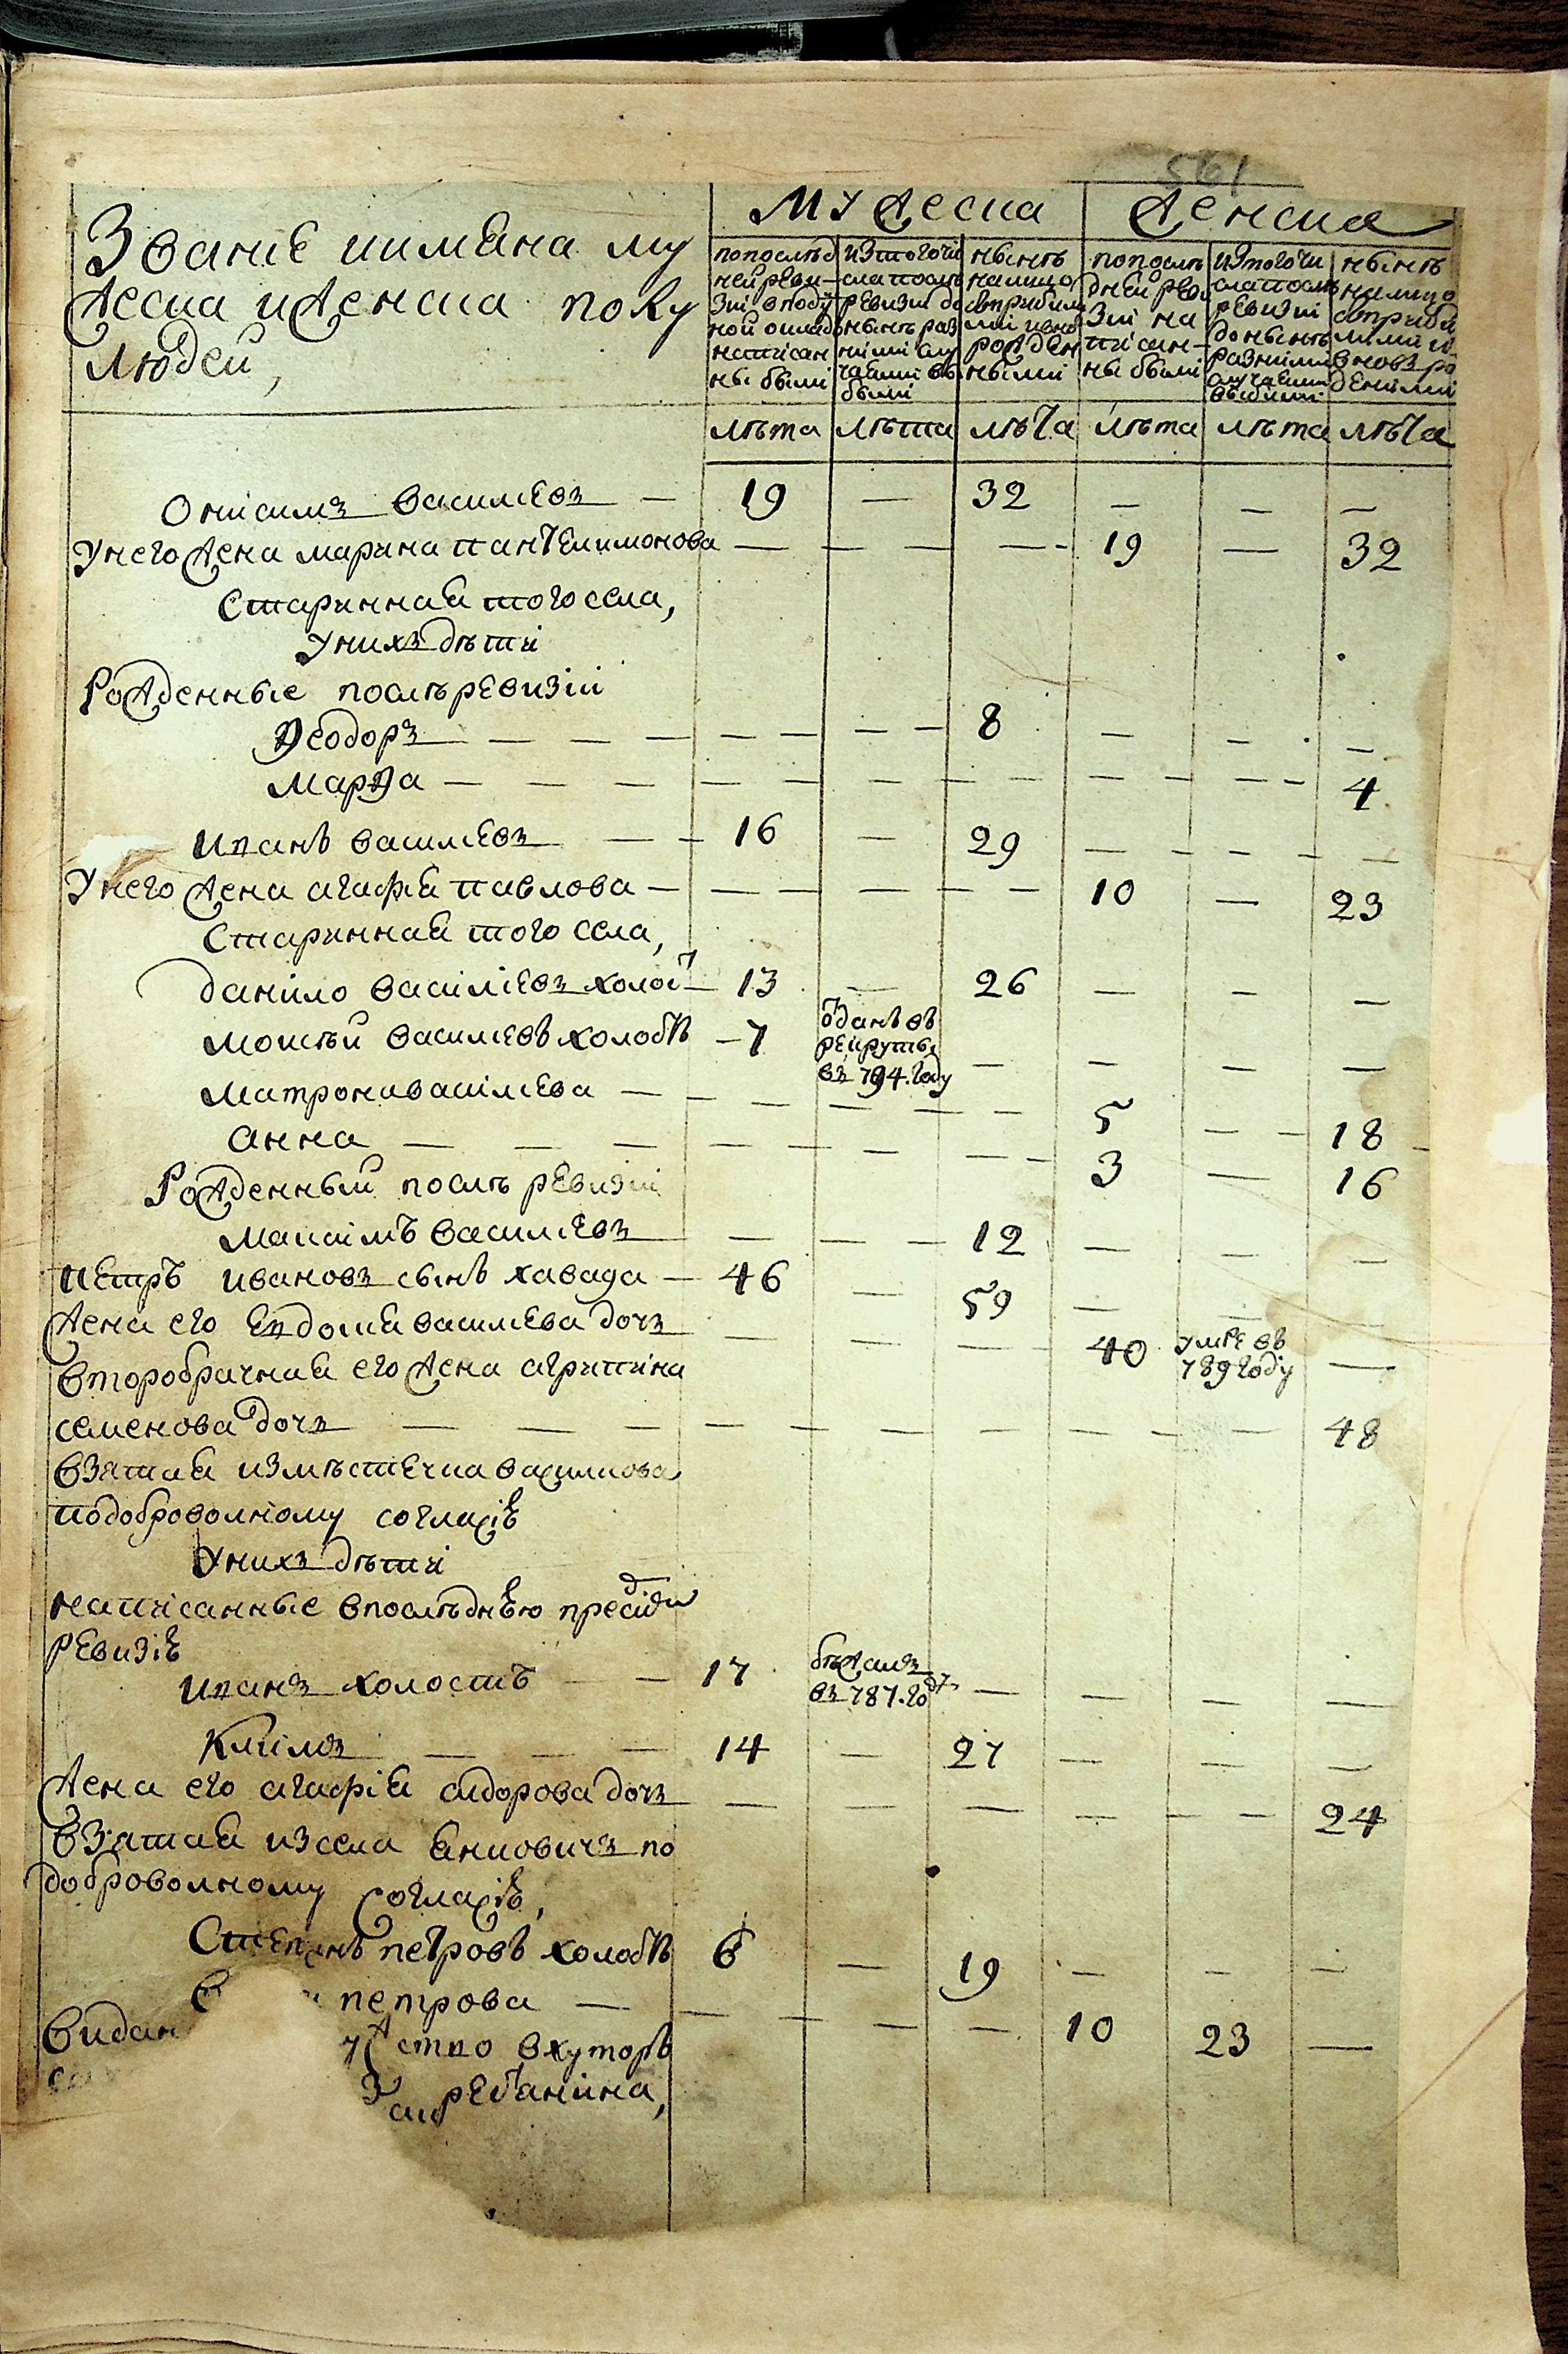 561
Званіе иимяна му
жеска иженска полу
людей,
мужеска женска
попослѣд
ней реви-
зіи вподу
ной оклад
написан
ны были
изтогочи
сла послѣ
ревизіи до
нынѣ раз
ними слу
чаями вы
были
нынѣ
налицо
сприбыл
ми ивно
рожден
ными
попослѣ
дней реви
зіи на
писан-
ны были
изтогочи
сла послѣ
ревизіи
донынѣ
разними
случаями
выбыли
нынѣ
налицо
сприбы
лими и
вновъ ро
жденіми
лѣта лѣта лѣта лѣта лѣта лѣта
Онисимъ василіевъ — 19 — 32 — — —
Унего жена марина пантелимонова — — — — - 19 — 32
Стариннаѧ того села,
Унихъ дѣти
Рожденные послѣ ревизіи
Ѳеодоръ — — — — — — — — 8 — — —
Марѳа — — — — — — — — — — — - 4
иванъ василіевъ — — 16 — 29 — — — — —
Унего жена агафія павлова — — — — — — 10 — 23
Стариннаѧ того села,
данило василіевъ холост 13 — 26 — — —
мойсѣй василіевъ холостъ - 7 отданъ въ рекруты въ 794. году — — — —
матрона василіева — — — — — — 5 — — 18
анна — — — — — — — - 3 — 16
Рожденный послѣ ревизіи
максимъ василіевъ — — — 12 — — —
петръ ивановъ сынъ хавада — 46 — 59 — — —
жена его евдокія василіева дочъ — — — 40 умре въ 789 году —
второбрачнаѧ его жена агрипина
семенова дочъ — — — — — — — — — — 48
взятаѧ измѣстечка василкова
подоброволному согласію
Унихъ дѣти
написанные впослѣднюю пред сим
ревизію
иванъ холостъ — — 17 бѣжалъ въ 787. году — — — —
Кирилъ — — — 14 — 27 — — —
жена его агафія сидорова дочъ — — — — — — 24
взятаѧ изсела янковичъ по
доброволному согласію,
Степанъ петровъ холостъ 6 — 19 — — —
петрова — — — — — 10 23 —
видан
жество вхуторъ